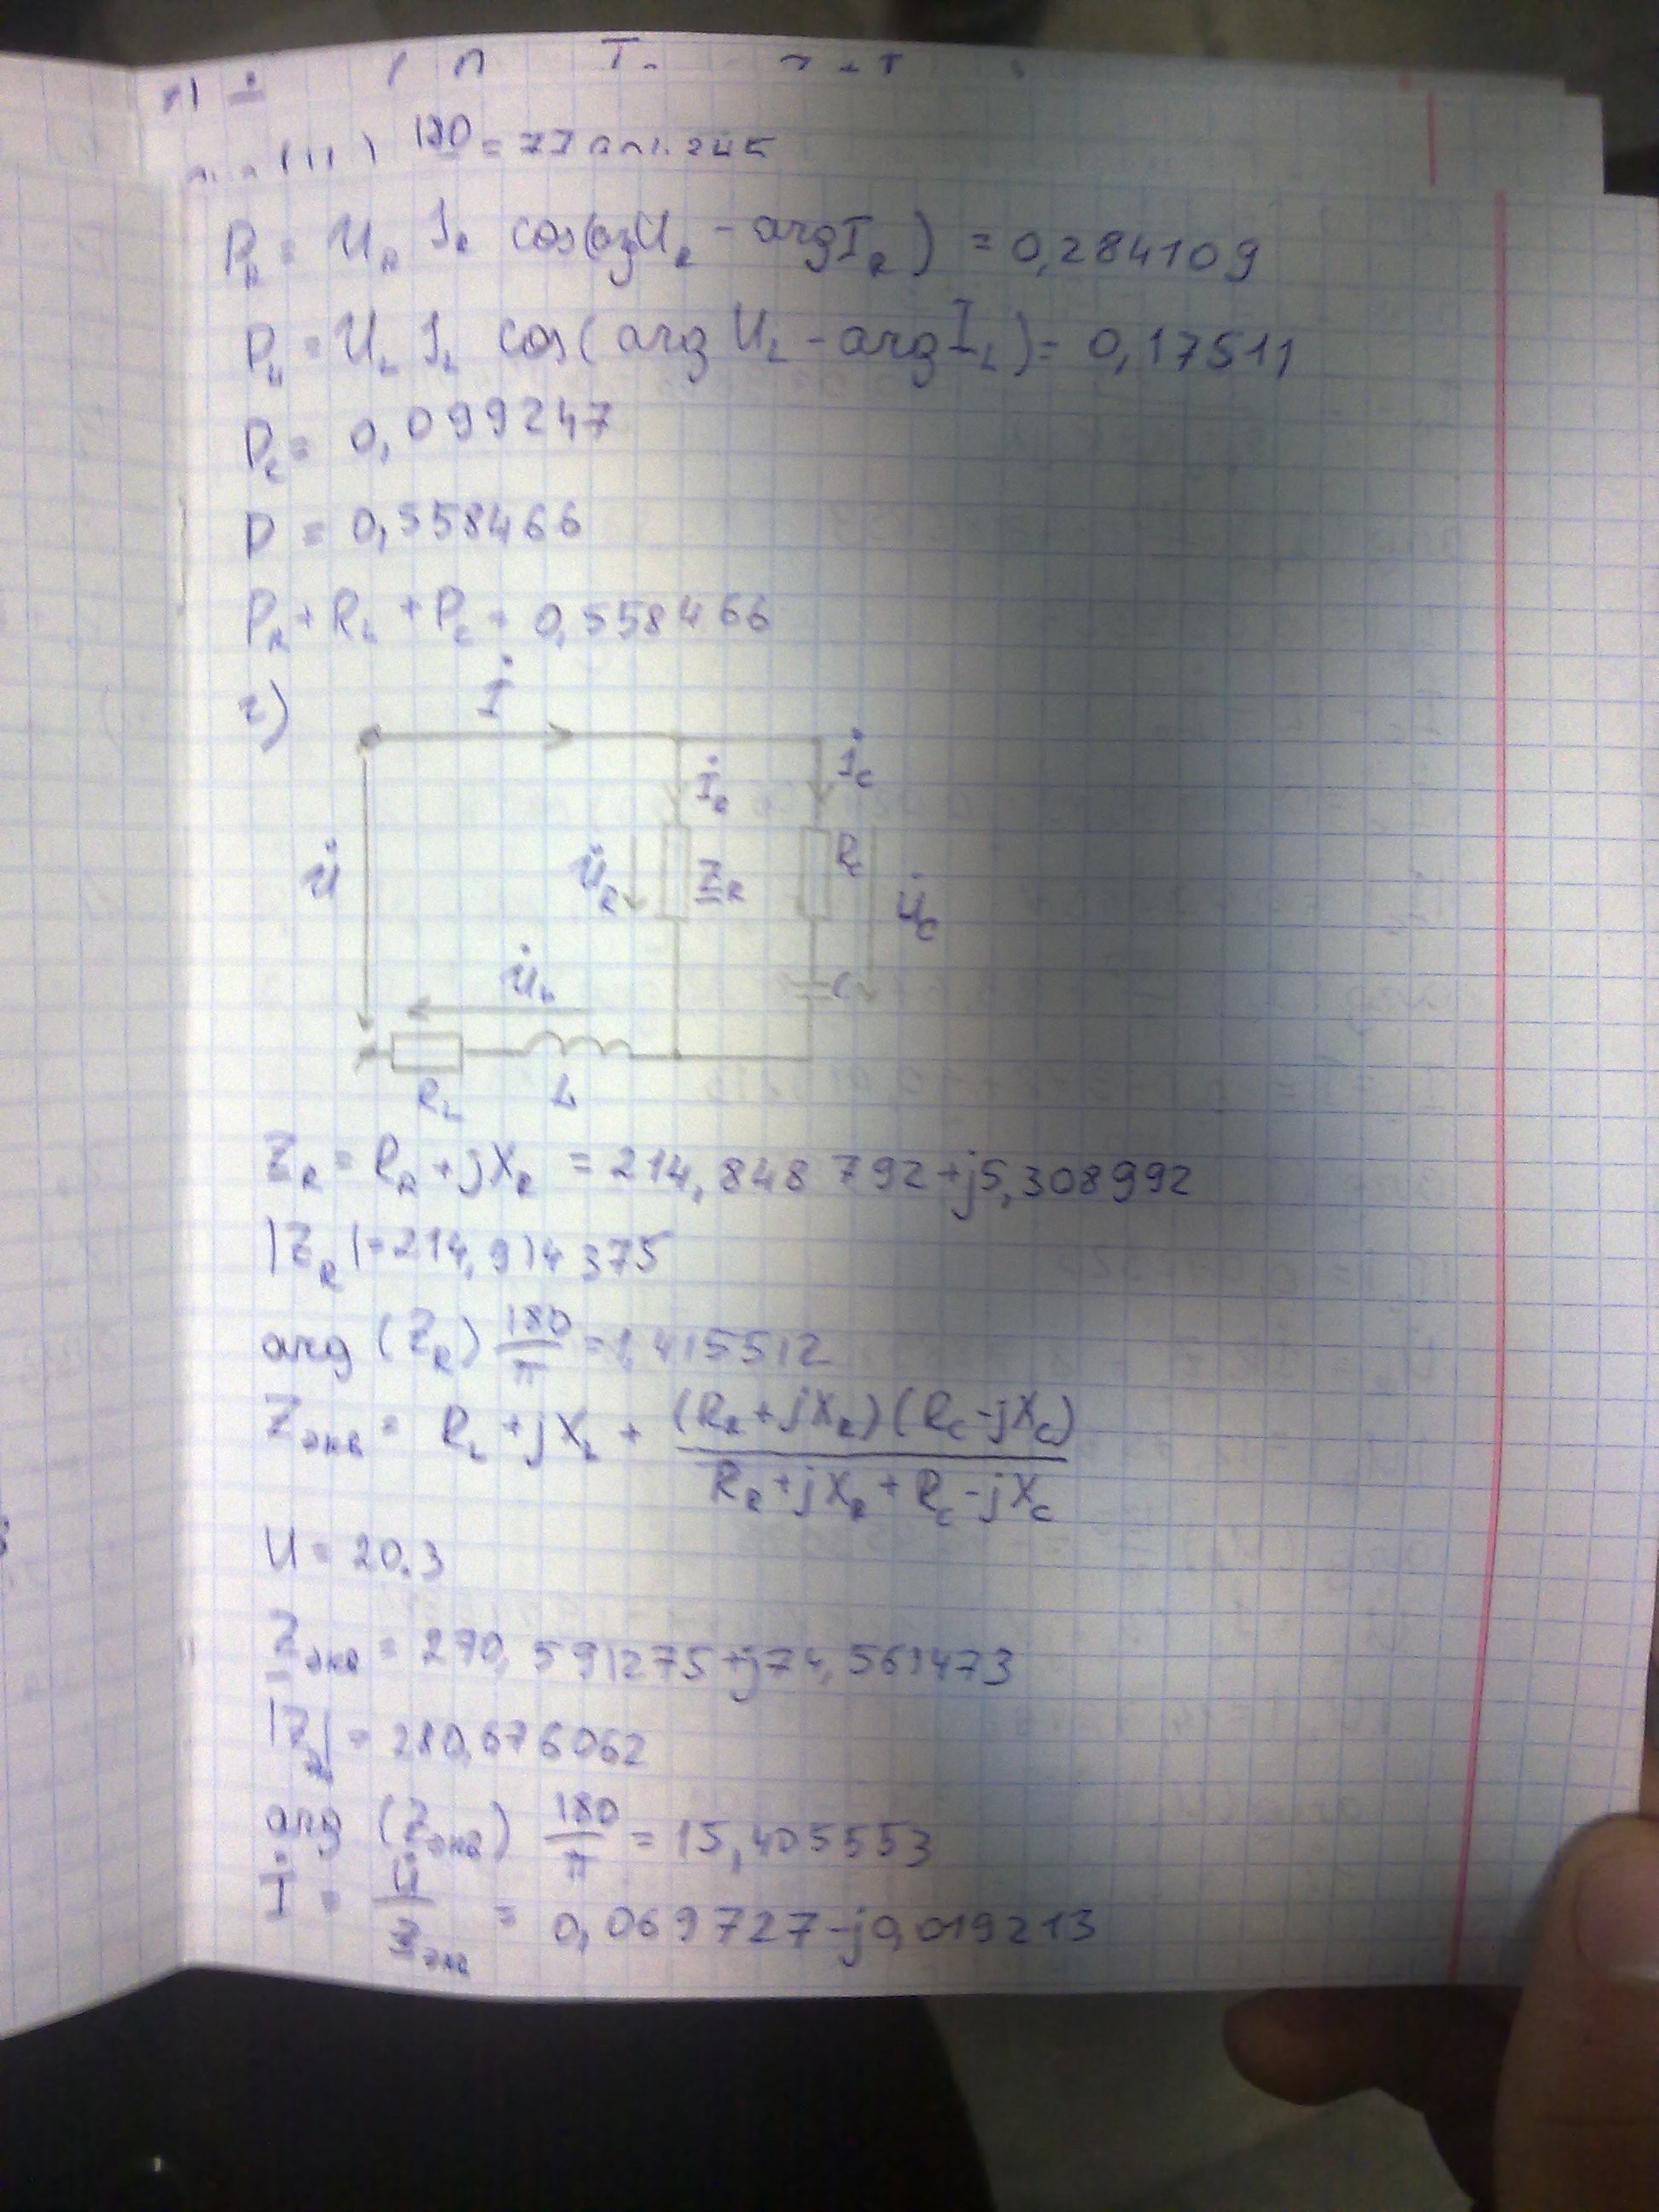 180
P_R = U_R I_R cos(argU_R - argI_R) = 0,284109
P_L = U_L I_L cos(arg U_L - argI_L) = 0,17511
P_C = 0,099247
P = 0,558466
P_R + R_L + P_C = 0,558466
г)
İ
İ_R İ_C
U̇ U̇_R Z_R R_C U̇_C
U̇_L C
R_L L
Z_R = R_R + jX_R = 214,848792+j5,308992
|Z_R| = 214,914375
arg (Z_R) 180/π = 1,415512
Z_экв = R_L + jX_L + (R_R + jX_R)(R_C - jX_C) / (R_R + jX_R + R_C - jX_C)
U = 20.3
Z_экв = 270,591275+j74,561473
|Z_э| = 280,676062
arg (Z_экв) 180/π = 15,405553
İ = U̇/Z_экв = 0,069727-j0,019213